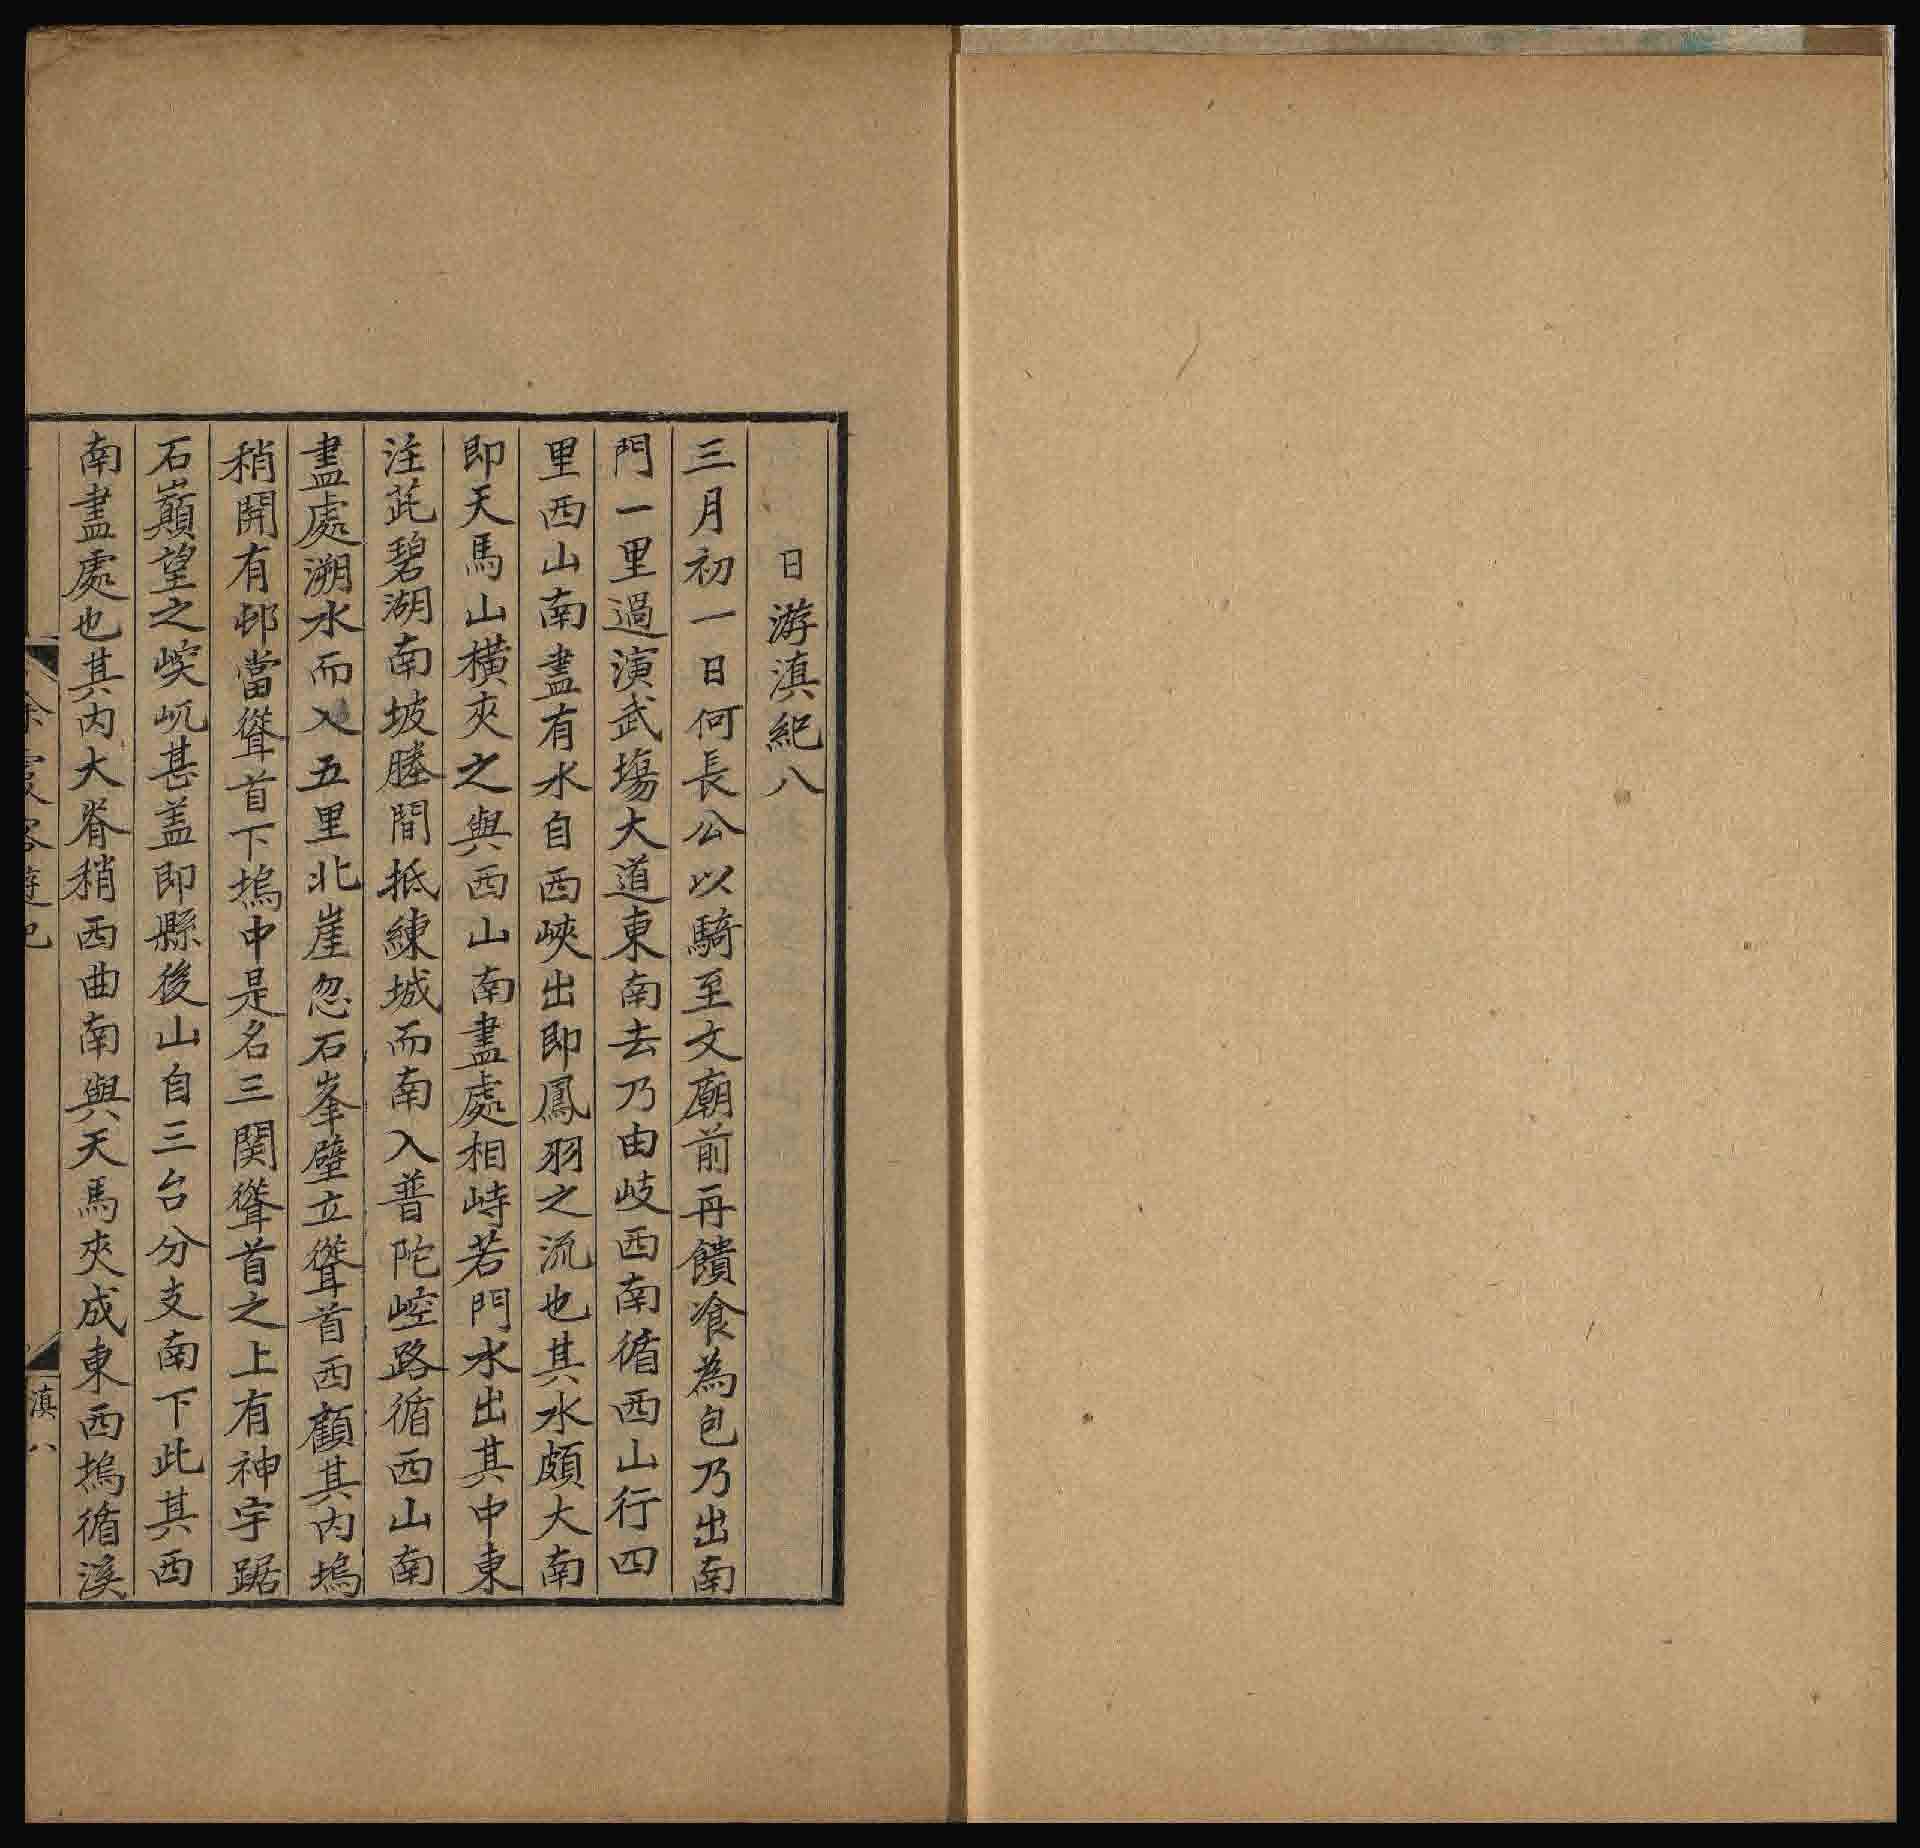 日游滇紀八
三月初一日何長公以騎至文廟前再饋飡為包乃出南
門一里過演武塲大道東南去乃由岐西南循西山行四
里西山南盡有水自西峽出即鳳羽之流也其水頗大南
即天馬山橫夾之與西山南盡處相峙若門水出其中東
注茈碧湖南坡塍間抵練城而南入普陀崆路循西山南
盡處溯水而入五里北崖忽石峯壁立聳首西顧其内塢
稍開有邨當聳首下塢中是名三関聳首之上有神宇踞
石巔望之峻屼甚盖即縣後山自三台分支南下此其西
南盡處也其内大脊稍西曲南與天馬夾成東西塢循溪
徐霞客遊記
滇八